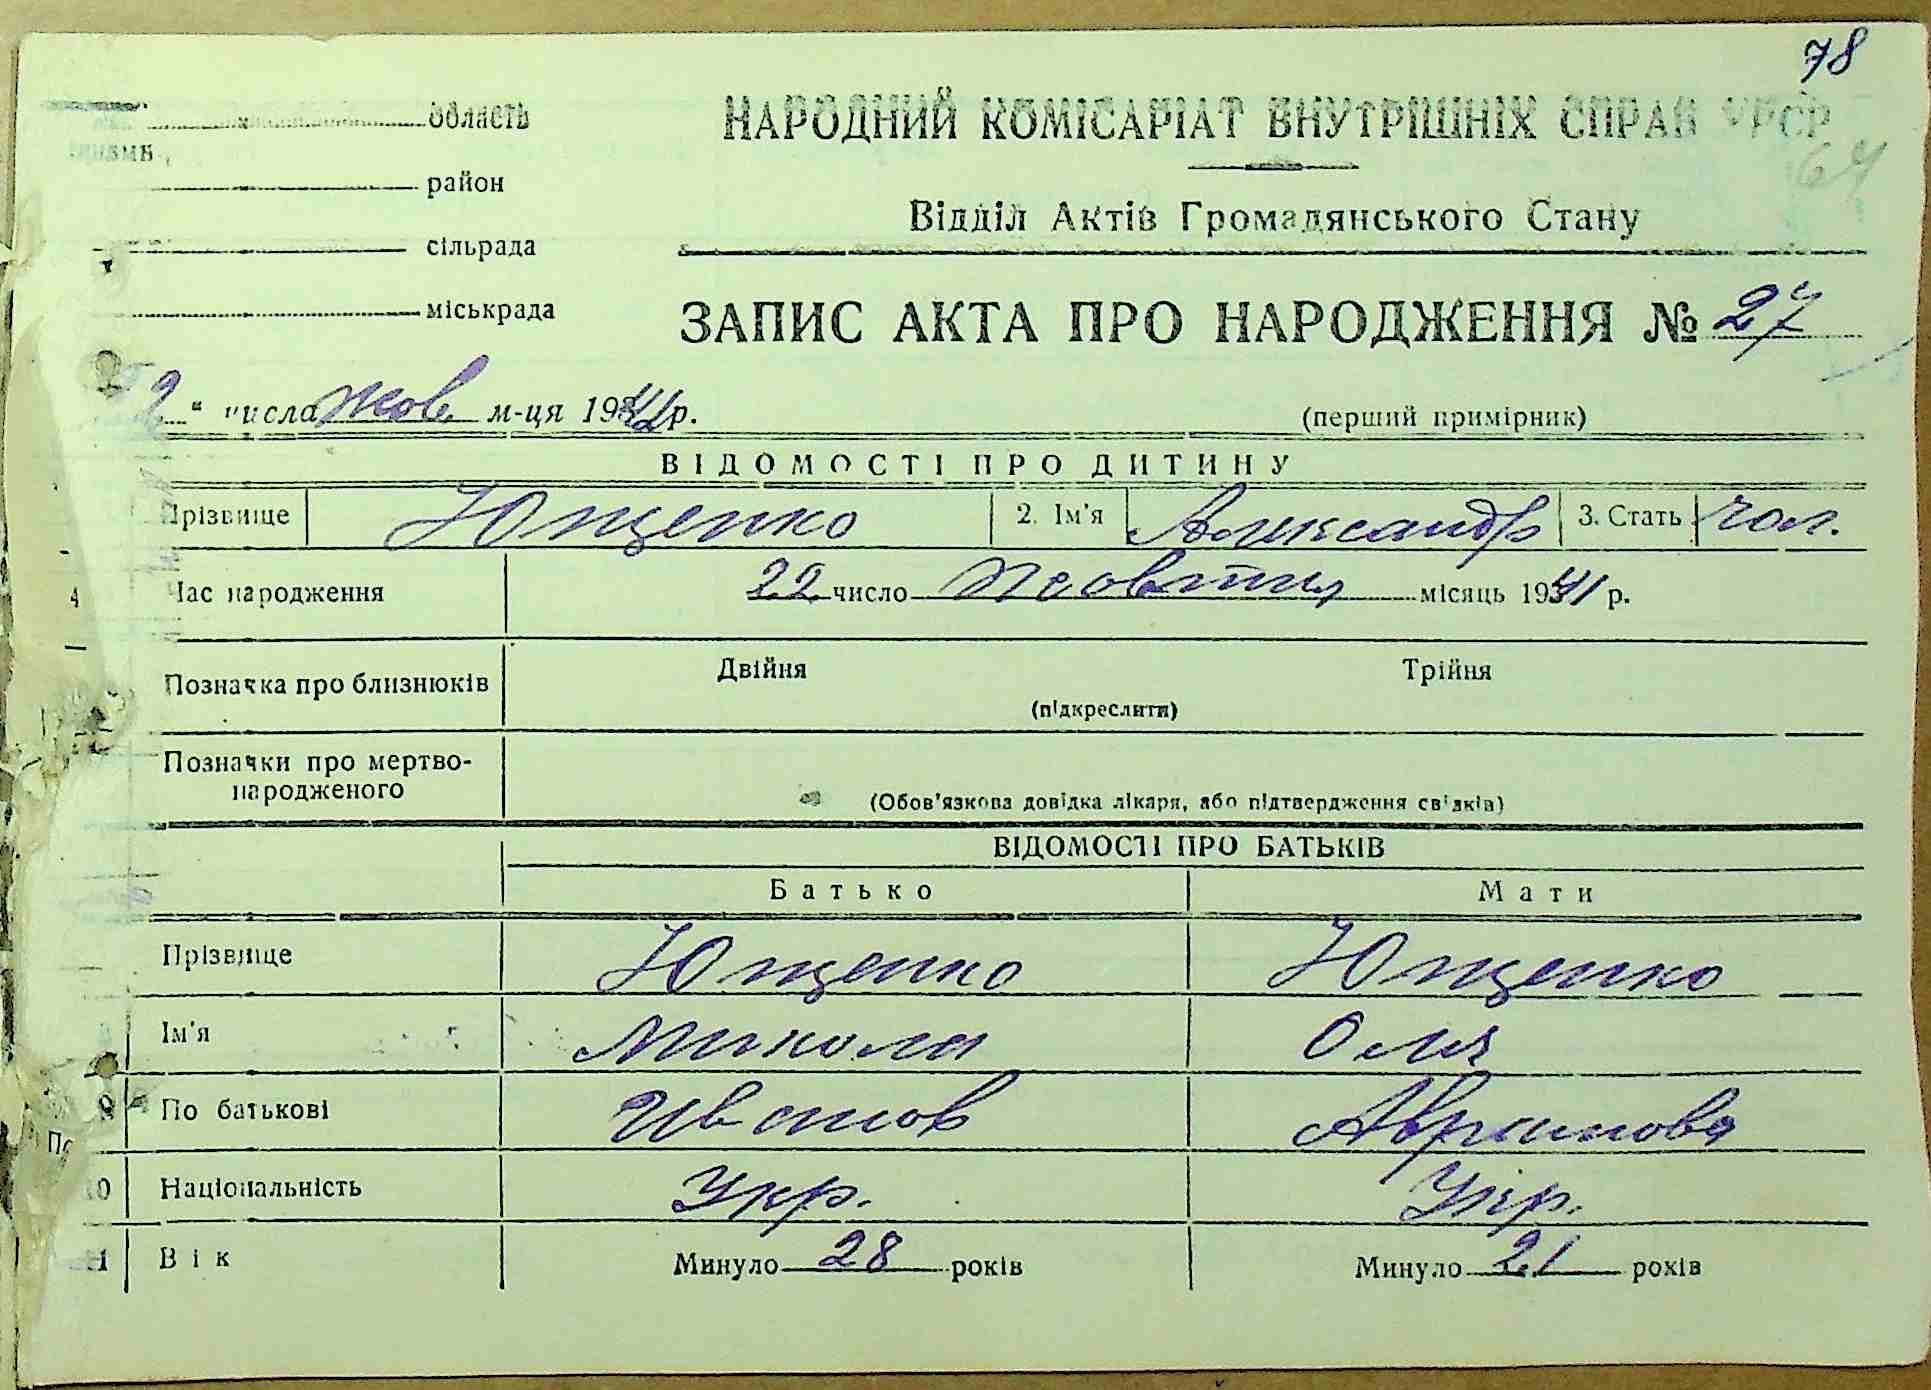 78
область
НАРОДНИЙ КОМІСАРІАТ ВНУТРІШНІХ СПРАВ УРСР
64
район
Відділ Актів Громадянського Стану
сільрада
міськрада
ЗАПИС АКТА ПРО НАРОДЖЕННЯ № 27
2 " числа Жов. м-ця 1941 р.
(перший примірник)
ВІДОМОСТІ ПРО ДИТИНУ
Прізвище Ющенко 2. Ім'я Александр 3. Стать чол.
4 Час народження 22 число Жовтня місяць 1941 р.
Позначка про близнюків Двійня Трійня
(підкреслити)
Позначки про мертво-
народженого
(Обов'язкова довідка лікаря, або підтвердження свідків)
ВІДОМОСТІ ПРО БАТЬКІВ
Батько Мати
Прізвище Ющенко Ющенко
Ім'я Микола Оля
9 По батькові Иванов Аврамова
10 Національність Укр. Укр.
11 Вік Минуло 28 років Минуло 21 років